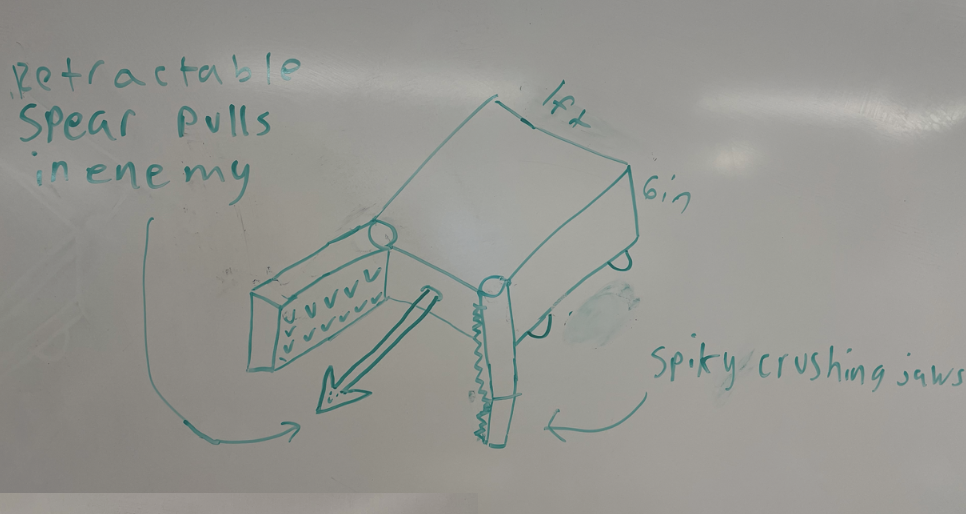 Retractable
Spear pulls
in enemy
1ft
6in
Spiky crushing jaws